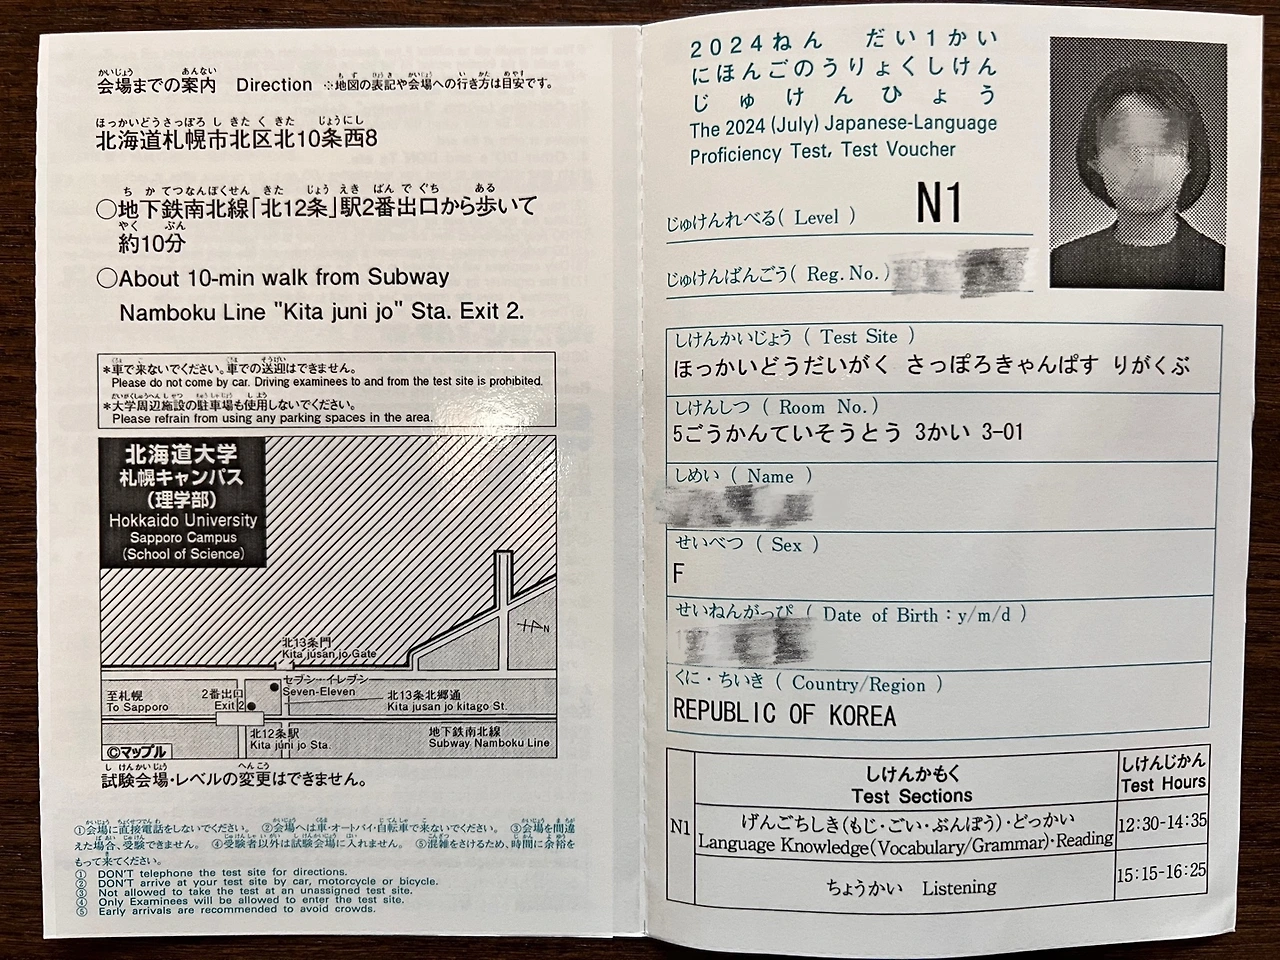 会場までの案内 Direction ※地図の表記や会場への行き方は目安です。
北海道札幌市北区北10条西8
○地下鉄南北線「北12条」駅2番出口から歩いて
約10分
○About 10-min walk from Subway
Namboku Line "Kita juni jo" Sta. Exit 2.
*車で来ないでください。車での送迎はできません。
Please do not come by car. Driving examinees to and from the test site is prohibited.
*大学周辺施設の駐車場も使用しないでください。
Please refrain from using any parking spaces in the area.
北海道大学
札幌キャンパス
(理学部)
Hokkaido University
Sapporo Campus
(School of Science)
N
北13条門
Kita jusan jo Gate
セブン-イレブン
Seven-Eleven
至札幌
To Sapporo
2番出口
Exit 2
北13条北郷通
Kita jusan jo kitago St.
北12条駅
Kita juni jo Sta.
地下鉄南北線
Subway Namboku Line
©マップル
試験会場・レベルの変更はできません。
①会場に直接電話をしないでください。 ②会場へは車・オートバイ・自転車で来ないでください。 ③会場を間違
えた場合、受験できません。 ④受験者以外は試験会場に入れません。 ⑤混雑をさけるため、時間に余裕を
もって来てください。
① DON'T telephone the test site for directions.
② DON'T arrive at your test site by car, motorcycle or bicycle.
③ Not allowed to take the test at an unassigned test site.
④ Only Examinees will be allowed to enter the test site.
⑤ Early arrivals are recommended to avoid crowds.
2024ねん だい1かい
にほんごのうりょくしけん
じゅけんひょう
The 2024 (July) Japanese-Language
Proficiency Test, Test Voucher
じゅけんれべる( Level ) N1
じゅけんばんごう( Reg. No. )
しけんかいじょう ( Test Site )
ほっかいどうだいがく さっぽろきゃんぱす りがくぶ
しけんしつ ( Room No. )
5ごうかんていそうとう 3かい 3-01
しめい ( Name )
せいべつ ( Sex )
F
せいねんがっぴ ( Date of Birth : y/m/d )
くに・ちいき ( Country/Region )
REPUBLIC OF KOREA
しけんかもく
Test Sections
しけんじかん
Test Hours
N1
げんごちしき(もじ・ごい・ぶんぽう)・どっかい
Language Knowledge(Vocabulary/Grammar)・Reading
12:30-14:35
ちょうかい Listening
15:15-16:25